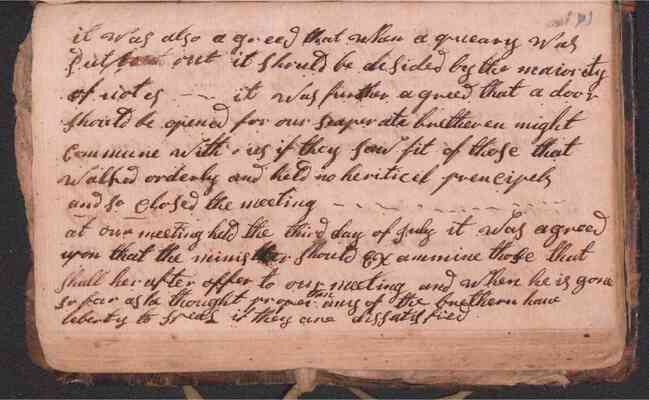 it was also a greed that when a queary was
put out it should be desided by the maiority
of votes - - it was further agreed that a door
should be opened for our seaperate bretheren might
commune with ous if they saw fit of those that
walked orderly and held no heriticel prencipels
and so closed the meeting - - - - - - - -
at our meeting held the third day of July it was agreed
upon that the minister should ex ammine those that
shall herafter offer to our meeting and when he is gone
so far as he thought proper then any of the brethern have
liberty to speak if they are dissatisfied